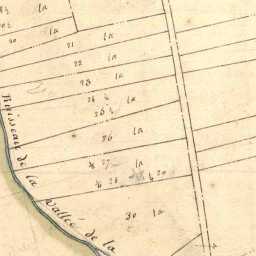 la
20 la
21 la
22 la
23 la
24 ½ la
25 ½
26 la
27 la
28
30 la
Ruisseau de la Vallée de la